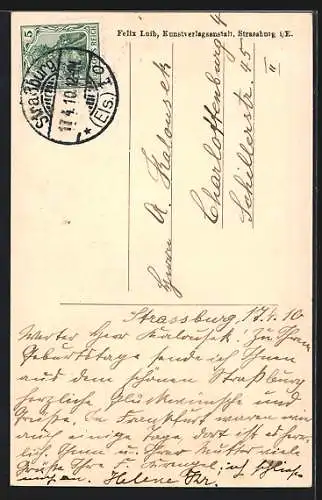 Felix Luib, Kunstverlagsanstalt, Strassburg i/E.
5
REICH
Straßburg
17.4.10
(Els.)
Herrn A. Kalousek
Charlottenburg 4
Schillerstr. 45 II
Strassburg, 17.4.10
Werter Herr Kalousek! Zu Ihrem
Geburtstage sende ich Ihnen
aus dem schönen Straßburg
herzliche Glückwünsche und
Grüsse. In Frankfurt waren wir
auch einige tage, dort ist es herr-
lich. Ihnen u. Ihrer Mutter viele
Grüsse Ihre
Helene